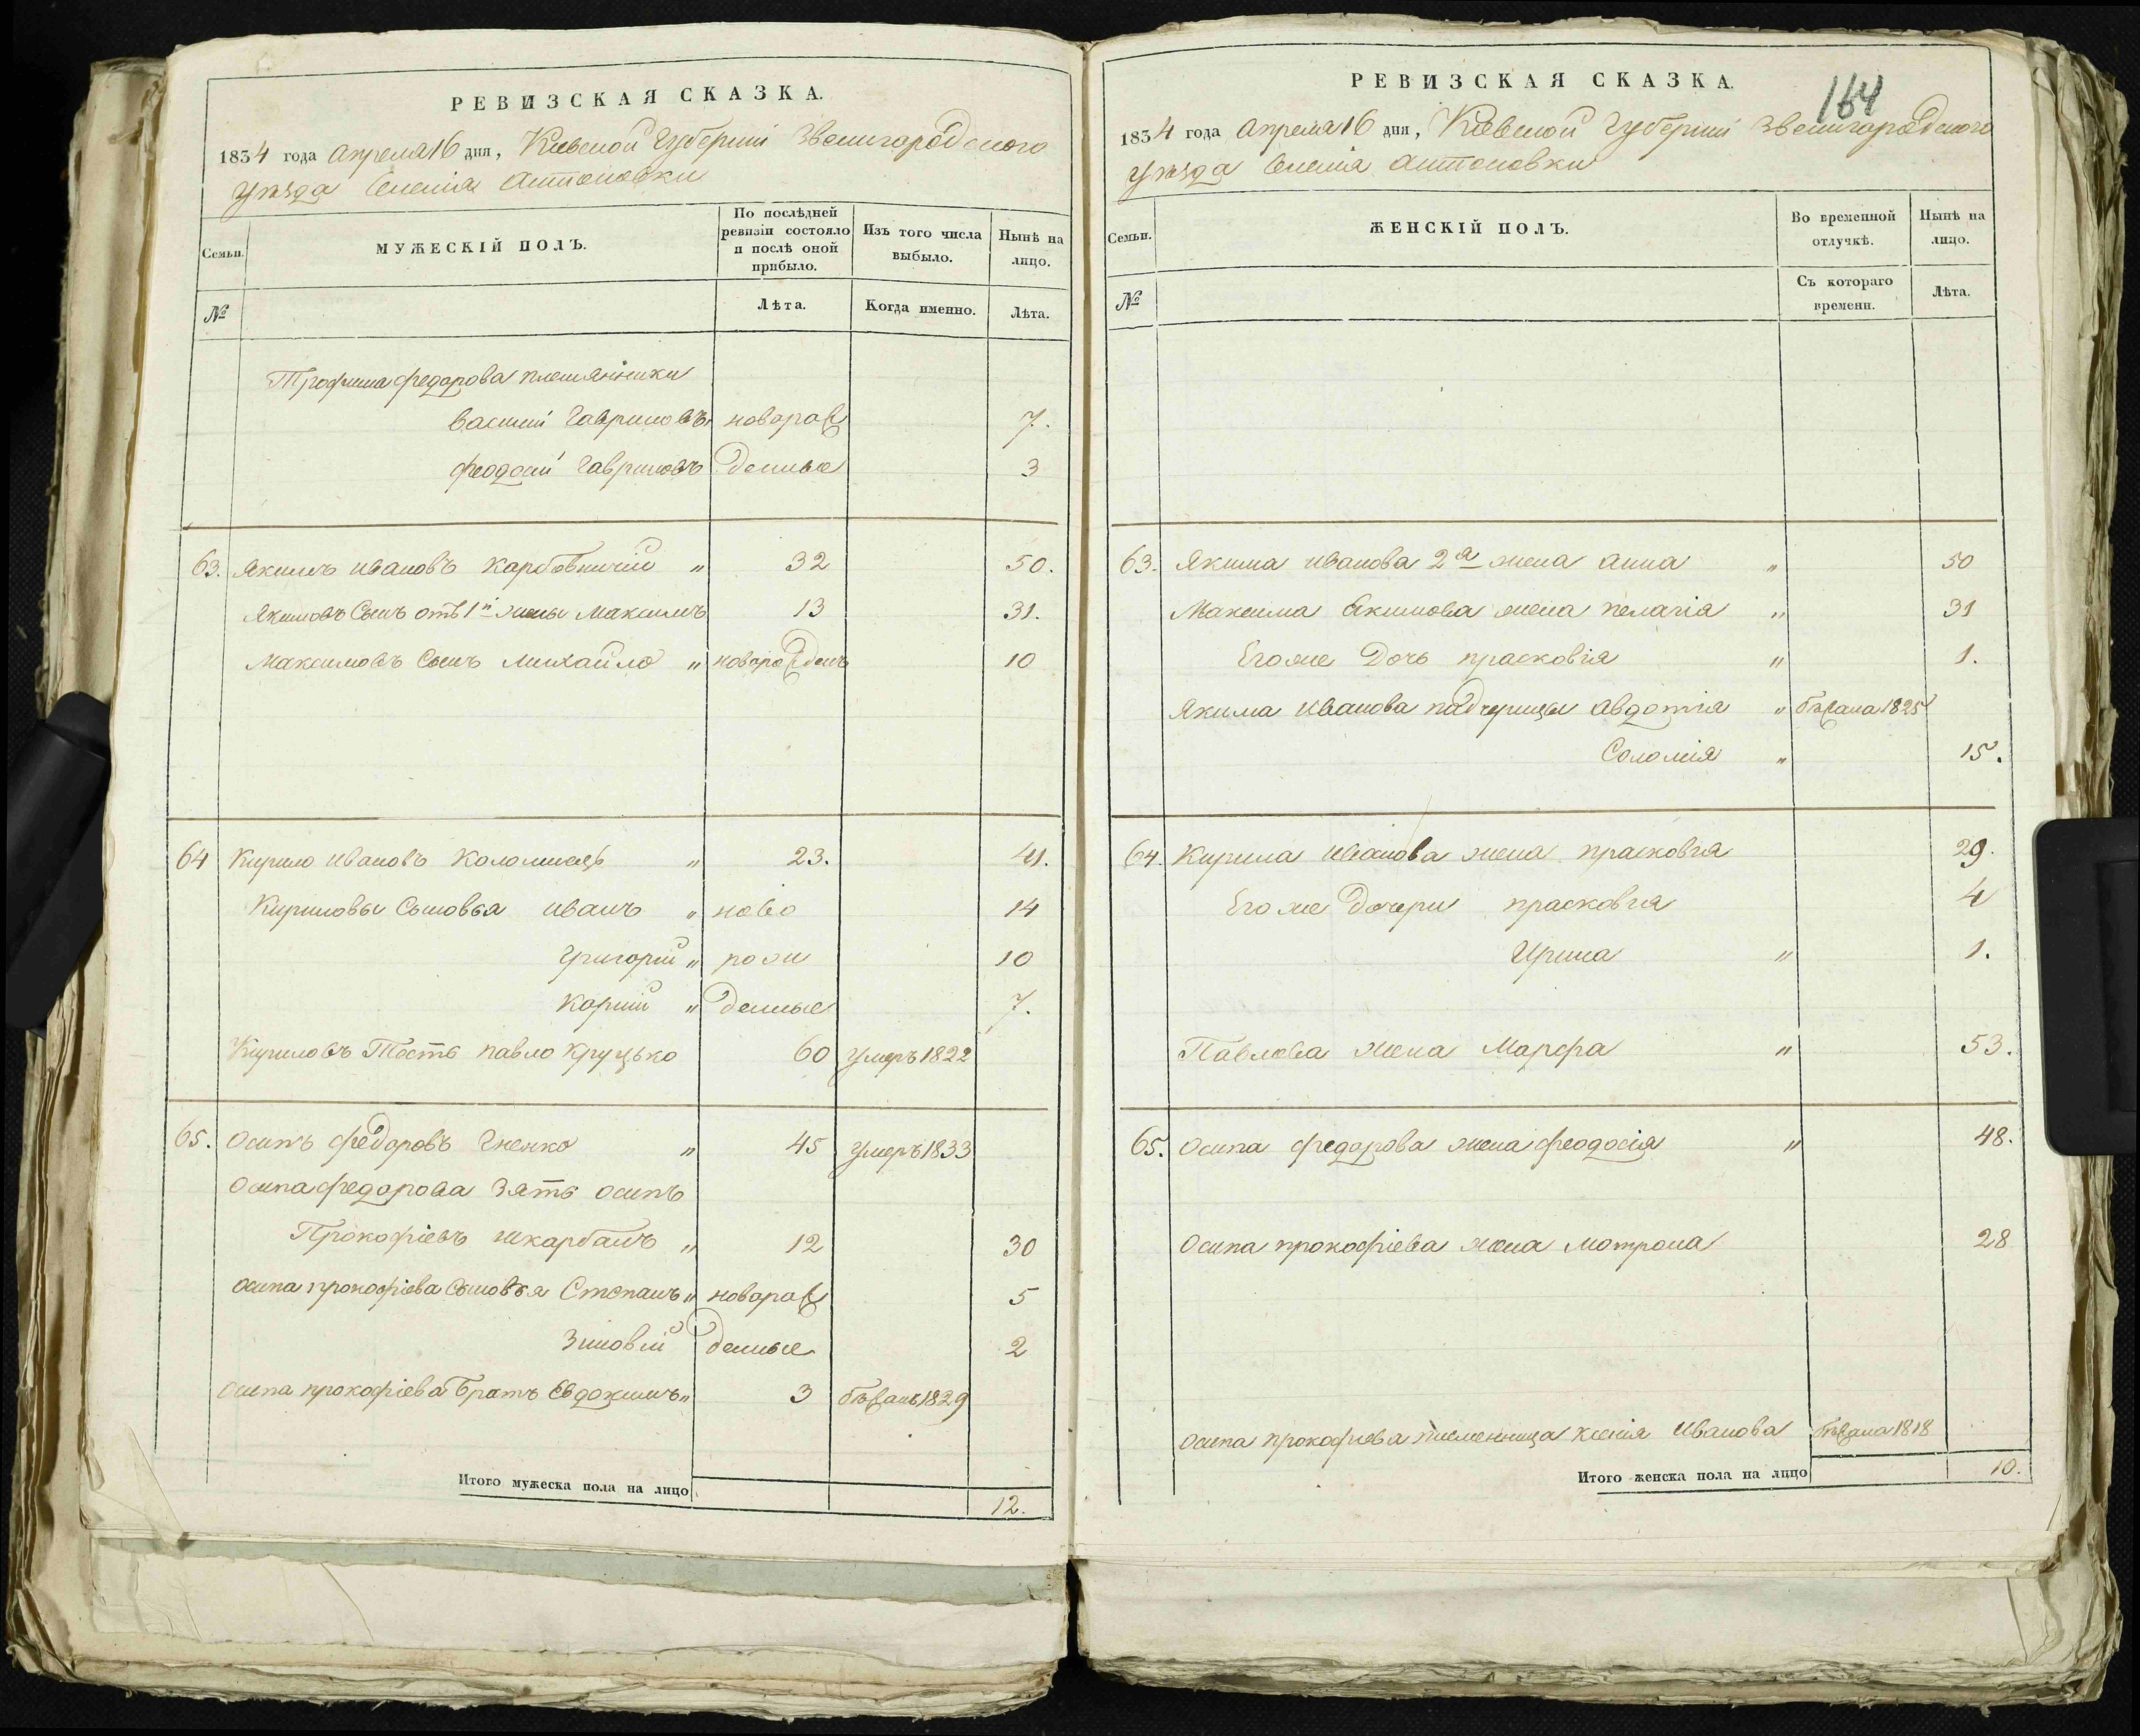 РЕВИЗСКАЯ СКАЗКА.
1834 года Апреля 16 дня, Киевской Губернии Звенигородского
уезда Селенія Антоновки
Семьи.
МУЖЕСКІЙ ПОЛЪ.
По послѣдней ревизіи состояло и послѣ оной прибыло.
Изъ того числа выбыло.
Нынѣ на лицо.
№
Лѣта.
Когда именно.
Лѣта.
Трофима федорова племянники
василій Гавриловъ новорож 7.
феодосій Гавриловъ денные 3
63. Якимъ ивановъ Карбовничій " 32 50.
Якимовъ Сынъ отъ 1й жены Максимъ 13 31.
Максимовъ Сынъ михайло " новорожденъ 10
64 Кирило ивановъ Коломиецъ " 23. 41.
Кириловы Сыновья иванъ " ново 14
Григорій " рож 10
Корній " денные 7.
Кириловъ Тесть павло Круцько 60 умеръ 1822
65. Осипъ федоровъ Гненко " 45 умеръ 1833
Осипа федорова Зять осипъ
Прокофіевъ шкарбанъ " 12 30
Осипа прокофіева Сыновья Степанъ " новорож 5
Зиновій денные 2
Осипа прокофіева Братъ Евдокимъ " 3 бѣжалъ 1829
Итого мужеска пола на лицо 12.
164
РЕВИЗСКАЯ СКАЗКА.
1834 года Апреля 16 дня, Киевской Губерніи Звенигородского
уезда Селенія Антоновки
Семьи.
ЖЕНСКІЙ ПОЛЪ.
Во временной отлучкѣ.
Нынѣ на лицо.
№
Съ котораго времени.
Лѣта.
63. Якима иванова 2я жена анна " 50
Максима Екимова жена пелагія " 31
Егоже Дочь прасковія " 1.
Якима Иванова падчерицы авдотія " бѣжала 1825
Соломія " 15.
64. Кирила иванова жена прасковія 29.
Егоже Дочери прасковія 4
Ирина " 1.
Павлова жена Марфа " 53.
65. Осипа федорова жена феодосія " 48.
Осипа прокофіева жена мотрона 28
Осипа прокофіева племенница ксенія Иванова бѣжала 1818
Итого женска пола на лицо 10.